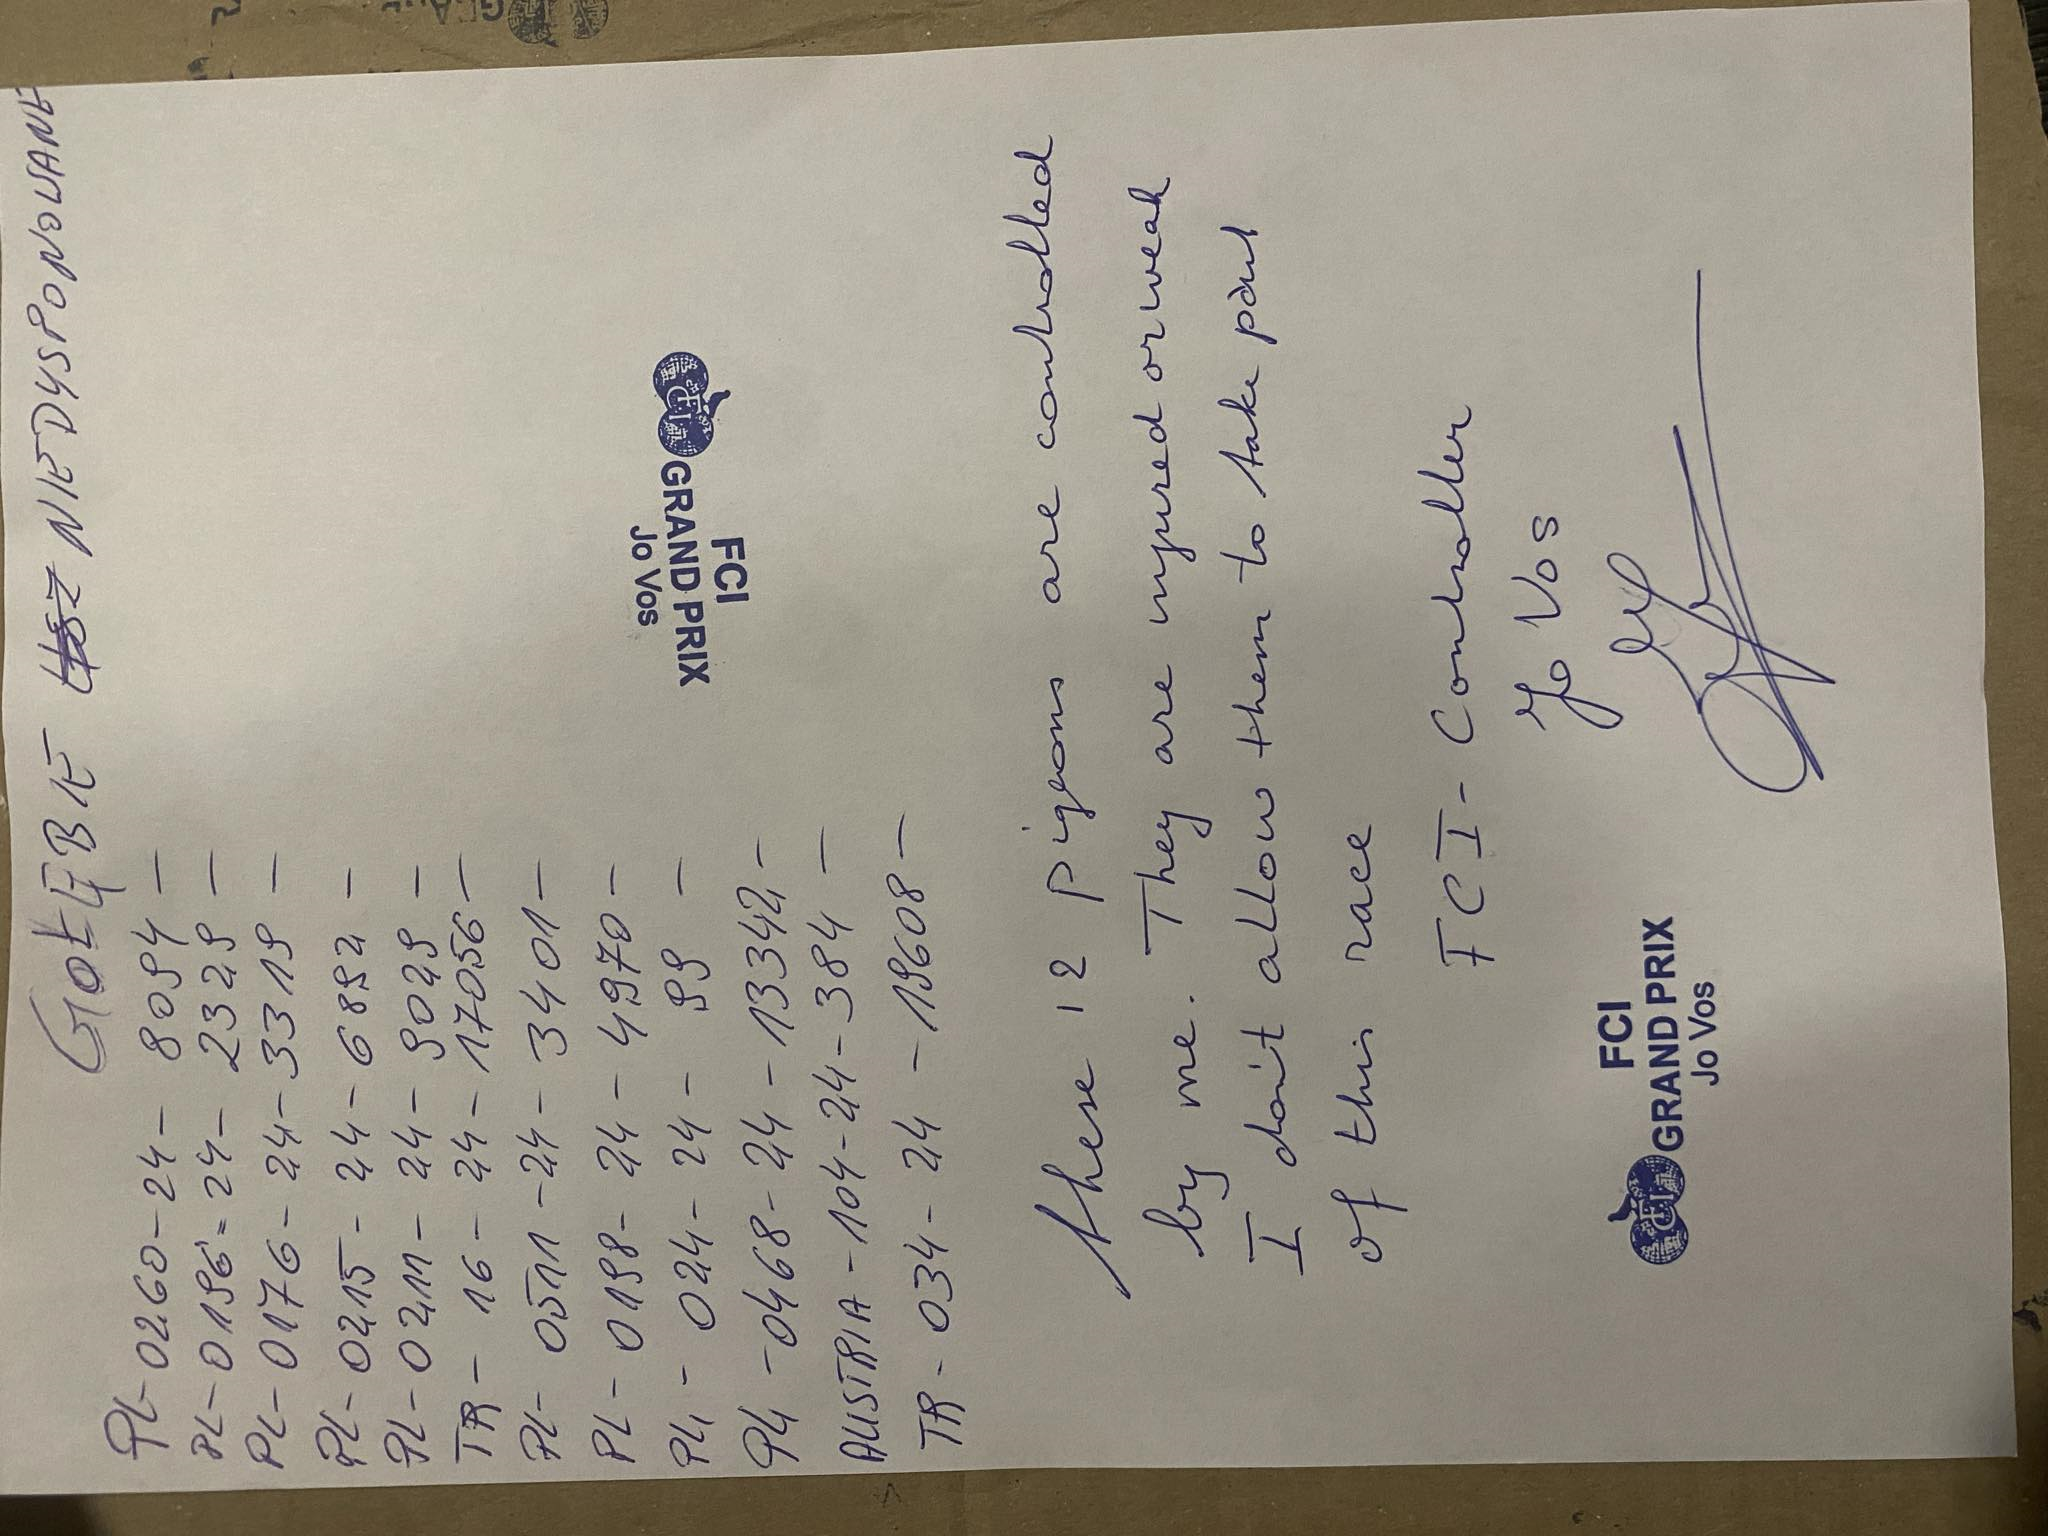 GOŁĘBIE NIEDYSPONOWANE
PL-0260-24- 8094 -
PL-0196-24- 2329 -
PL-0176-24-3319 -
PL-0215-24-6892 -
PL-0211-24-9029 -
TR-16-24-17056 -
PL-0511-24-3401 -
PL-0198-24-4970 -
PL-024-24-99 -
PL-0468-24-13342 -
AUSTRIA-104-24-384 -
TR-034-24-19608 -
FCI
GRAND PRIX
Jo Vos
These 12 pigeons are controlled
by me. They are injured or weak
I don't allow them to take part
of this race
FCI-Controller
Jo Vos
FCI
GRAND PRIX
Jo Vos